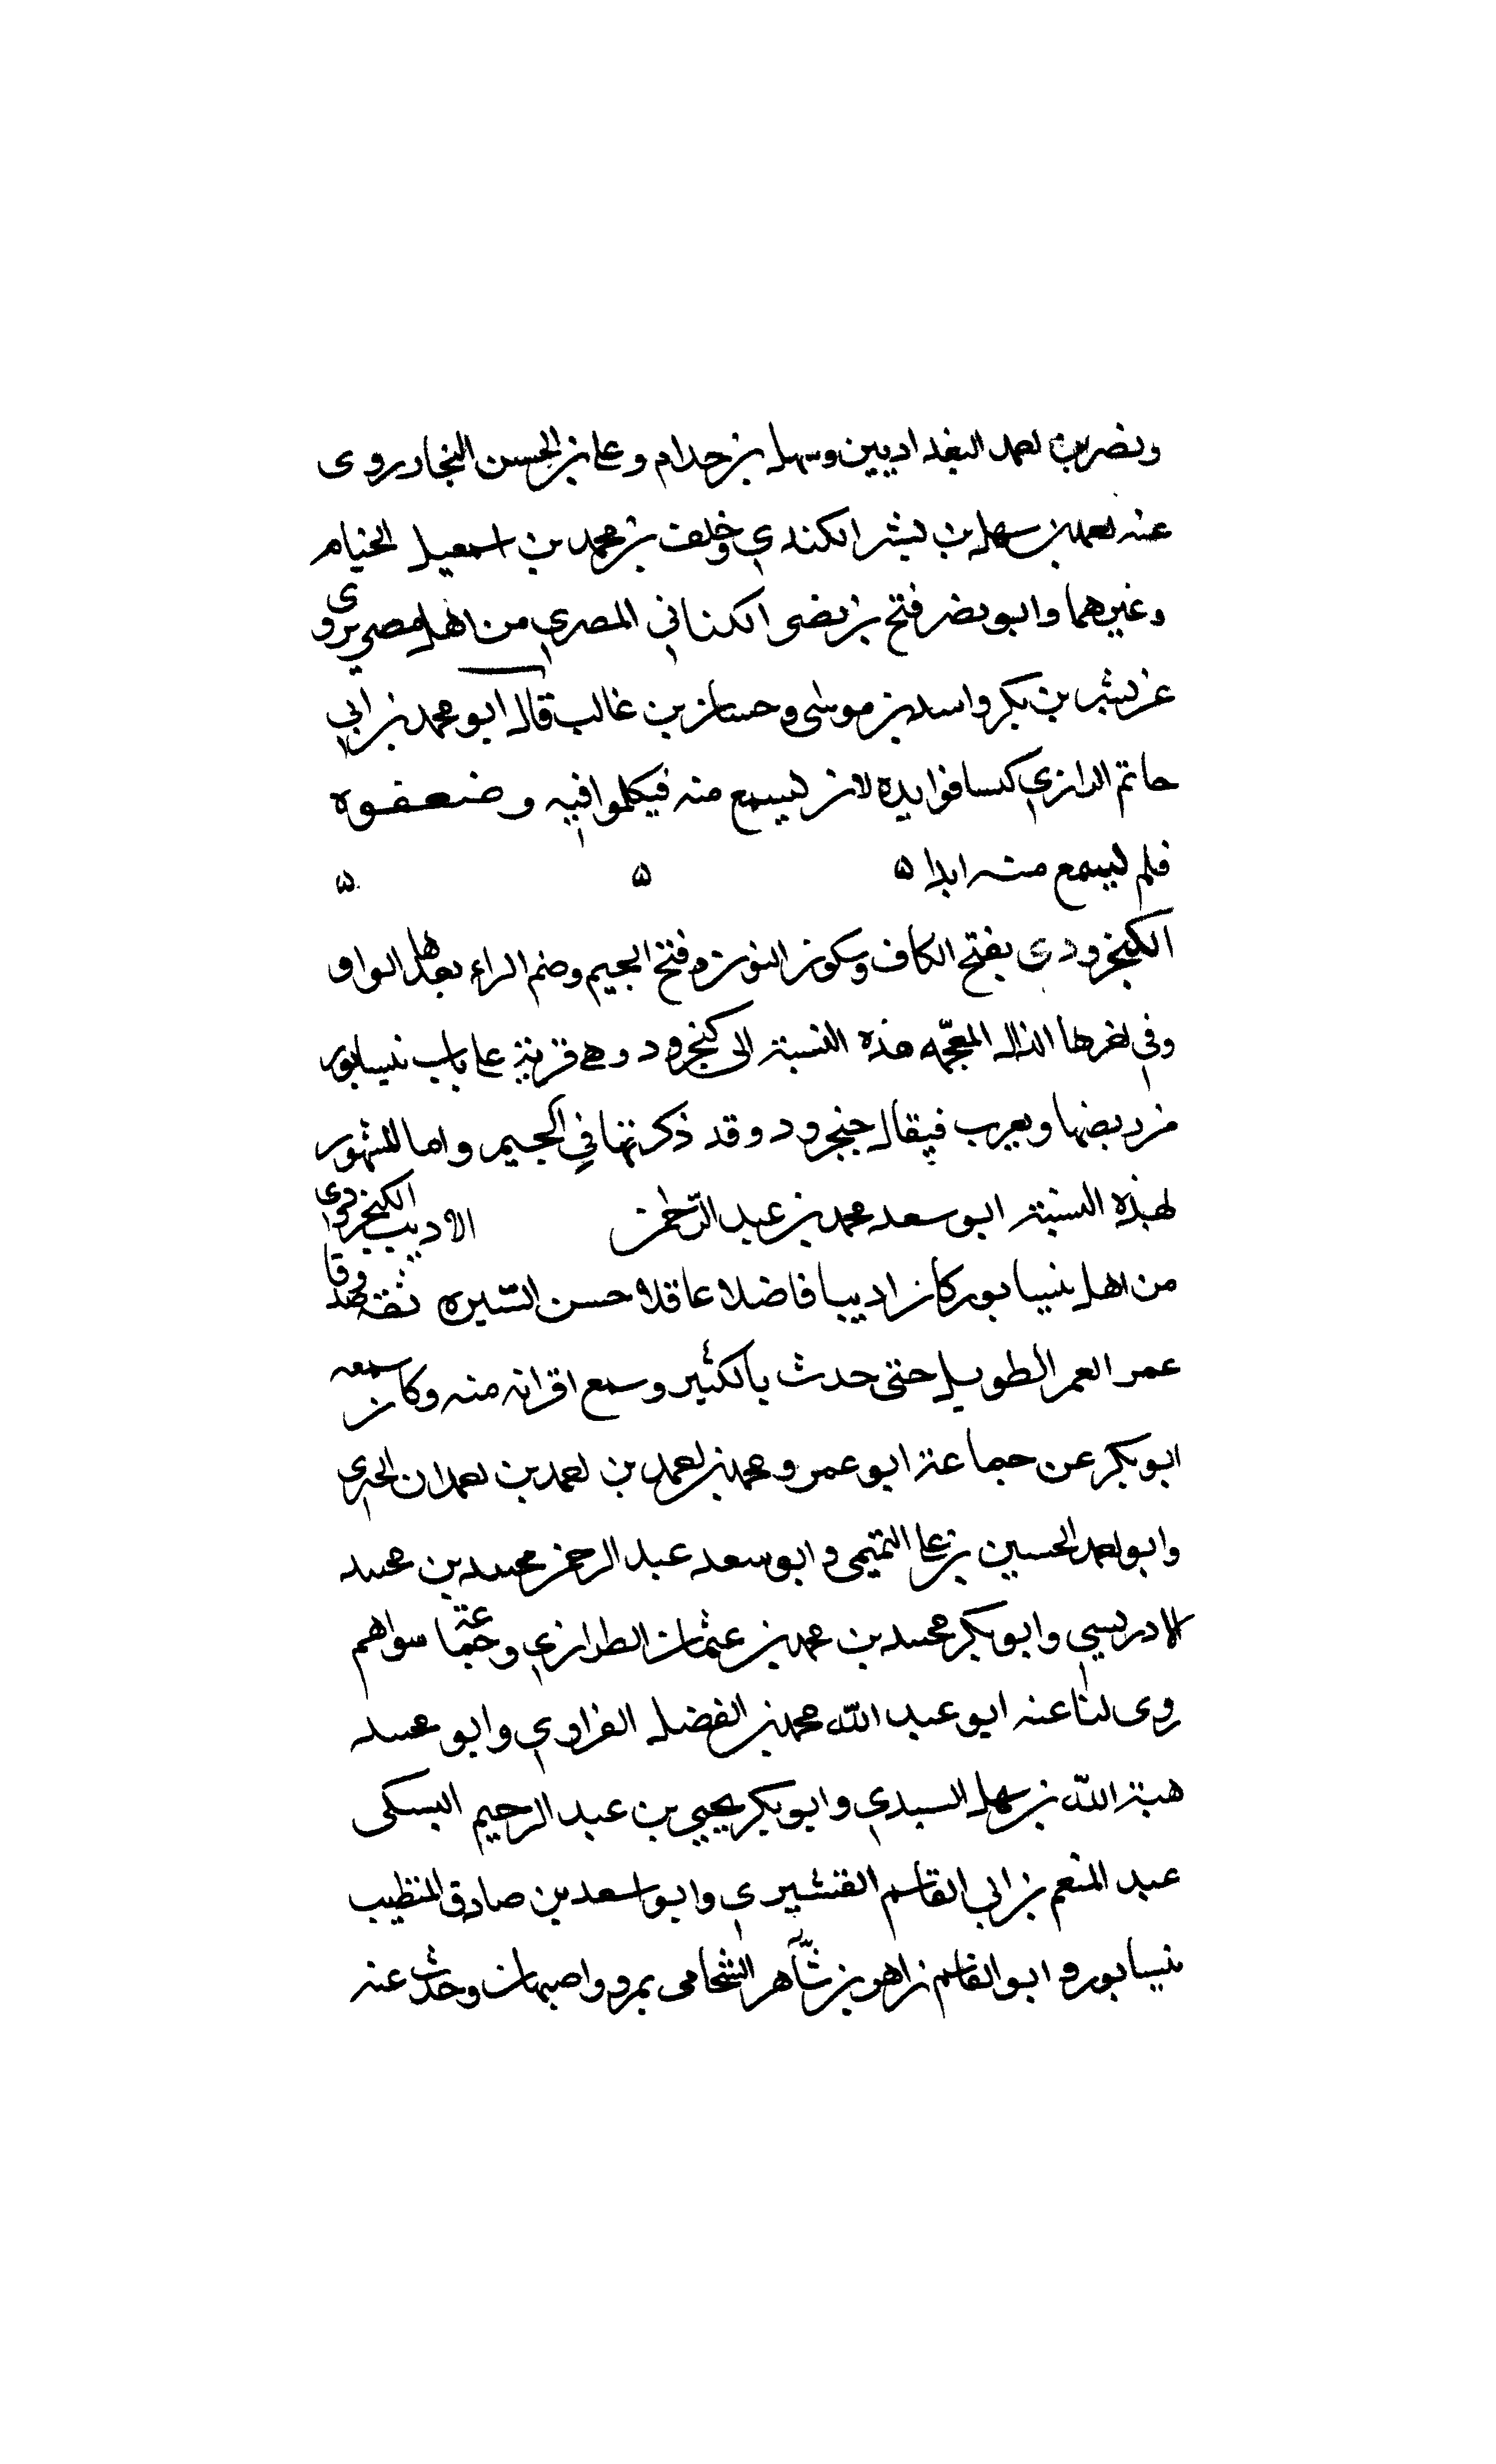 ونصر بن احمد البغداديين وسهل بن حدام وعلي بن الحسن النجاد روى
عنه احمد بن سهل بن بشر الكندي وخلف بن محمد بن اسمعيل الخيام
وغيرهما وابو نصر فتح بن نصر الكناني المصري من اهل مصر يروي
عن بشر بن بكر واسد بن موسى وحسان بن غالب قال ابو محمد بن ابي
حاتم الرازي كتبنا فوايده لان نسمع منه فتكلموا فيه وضعفوه
فلم نسمع منه ابدا ه ه ه
الكنجرودي بفتح الكاف وسكون النون وفتح الجيم وضم الراء بعدها الواو
وفي اخرها الذال المعجمة هذه النسبة الى كنجرود وهي قرية على باب نيسابور
من ربضها ويعرب فيقال جنجرود وقد ذكرتها في الجيم واما المشهور
بهذه النسبة ابو سعد محمد بن عبد الرحمن الاديب الكنجرودي
من اهل نيسابور كان اديبا فاضلا عاقلا حسن السيرة ثقة صدوقا
عمر العمر الطويل حتى حدث بالكثير وسمع اقرانه منه وكان سمعه
ابو بكر عن جماعة ابو عمرو محمد بن احمد بن احمد بن حمدان الحيري
وابو احمد الحسين بن علي التميمي وابو سعد عبد الرحمن محمد بن محمد
الادريسي وابو بكر محمد بن محمد بن عثمان الطرازي وجماعة سواهم
روى لنا عنه ابو عبد الله محمد بن الفضل الفراوي وابو محمد
هبة الله بن سهل السيدي وابو بكر يحيى بن عبد الرحيم البسكى
عبد المنعم بن ابي القاسم القشيري وابو اسعد بن صادق المنطيب
نيسابور و ابو القاسم زاهر بن شاهر الشحامي بمرو واصبهان وحدث عنه